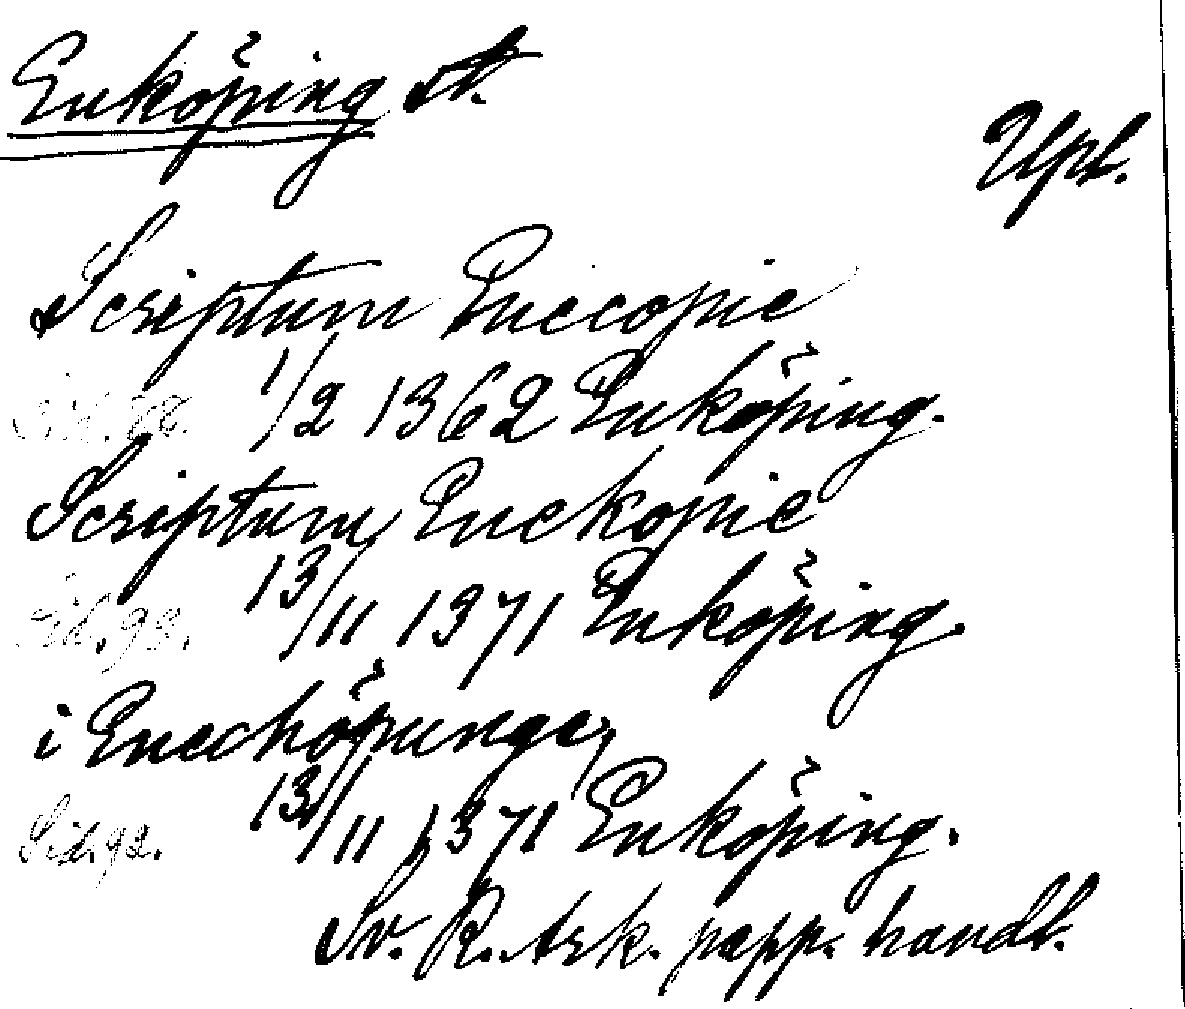 Enköping st.
Upl.
Scriptum Eneccopie
1/2 1362 Enköping.
Scriptum Enekopie
Sid. 92. 13/11 1371 Enköping.
i Enechöpunge,
Sid. 92. 13/11 1371 Enköping.
Sv. R. Ark. papp. handl.